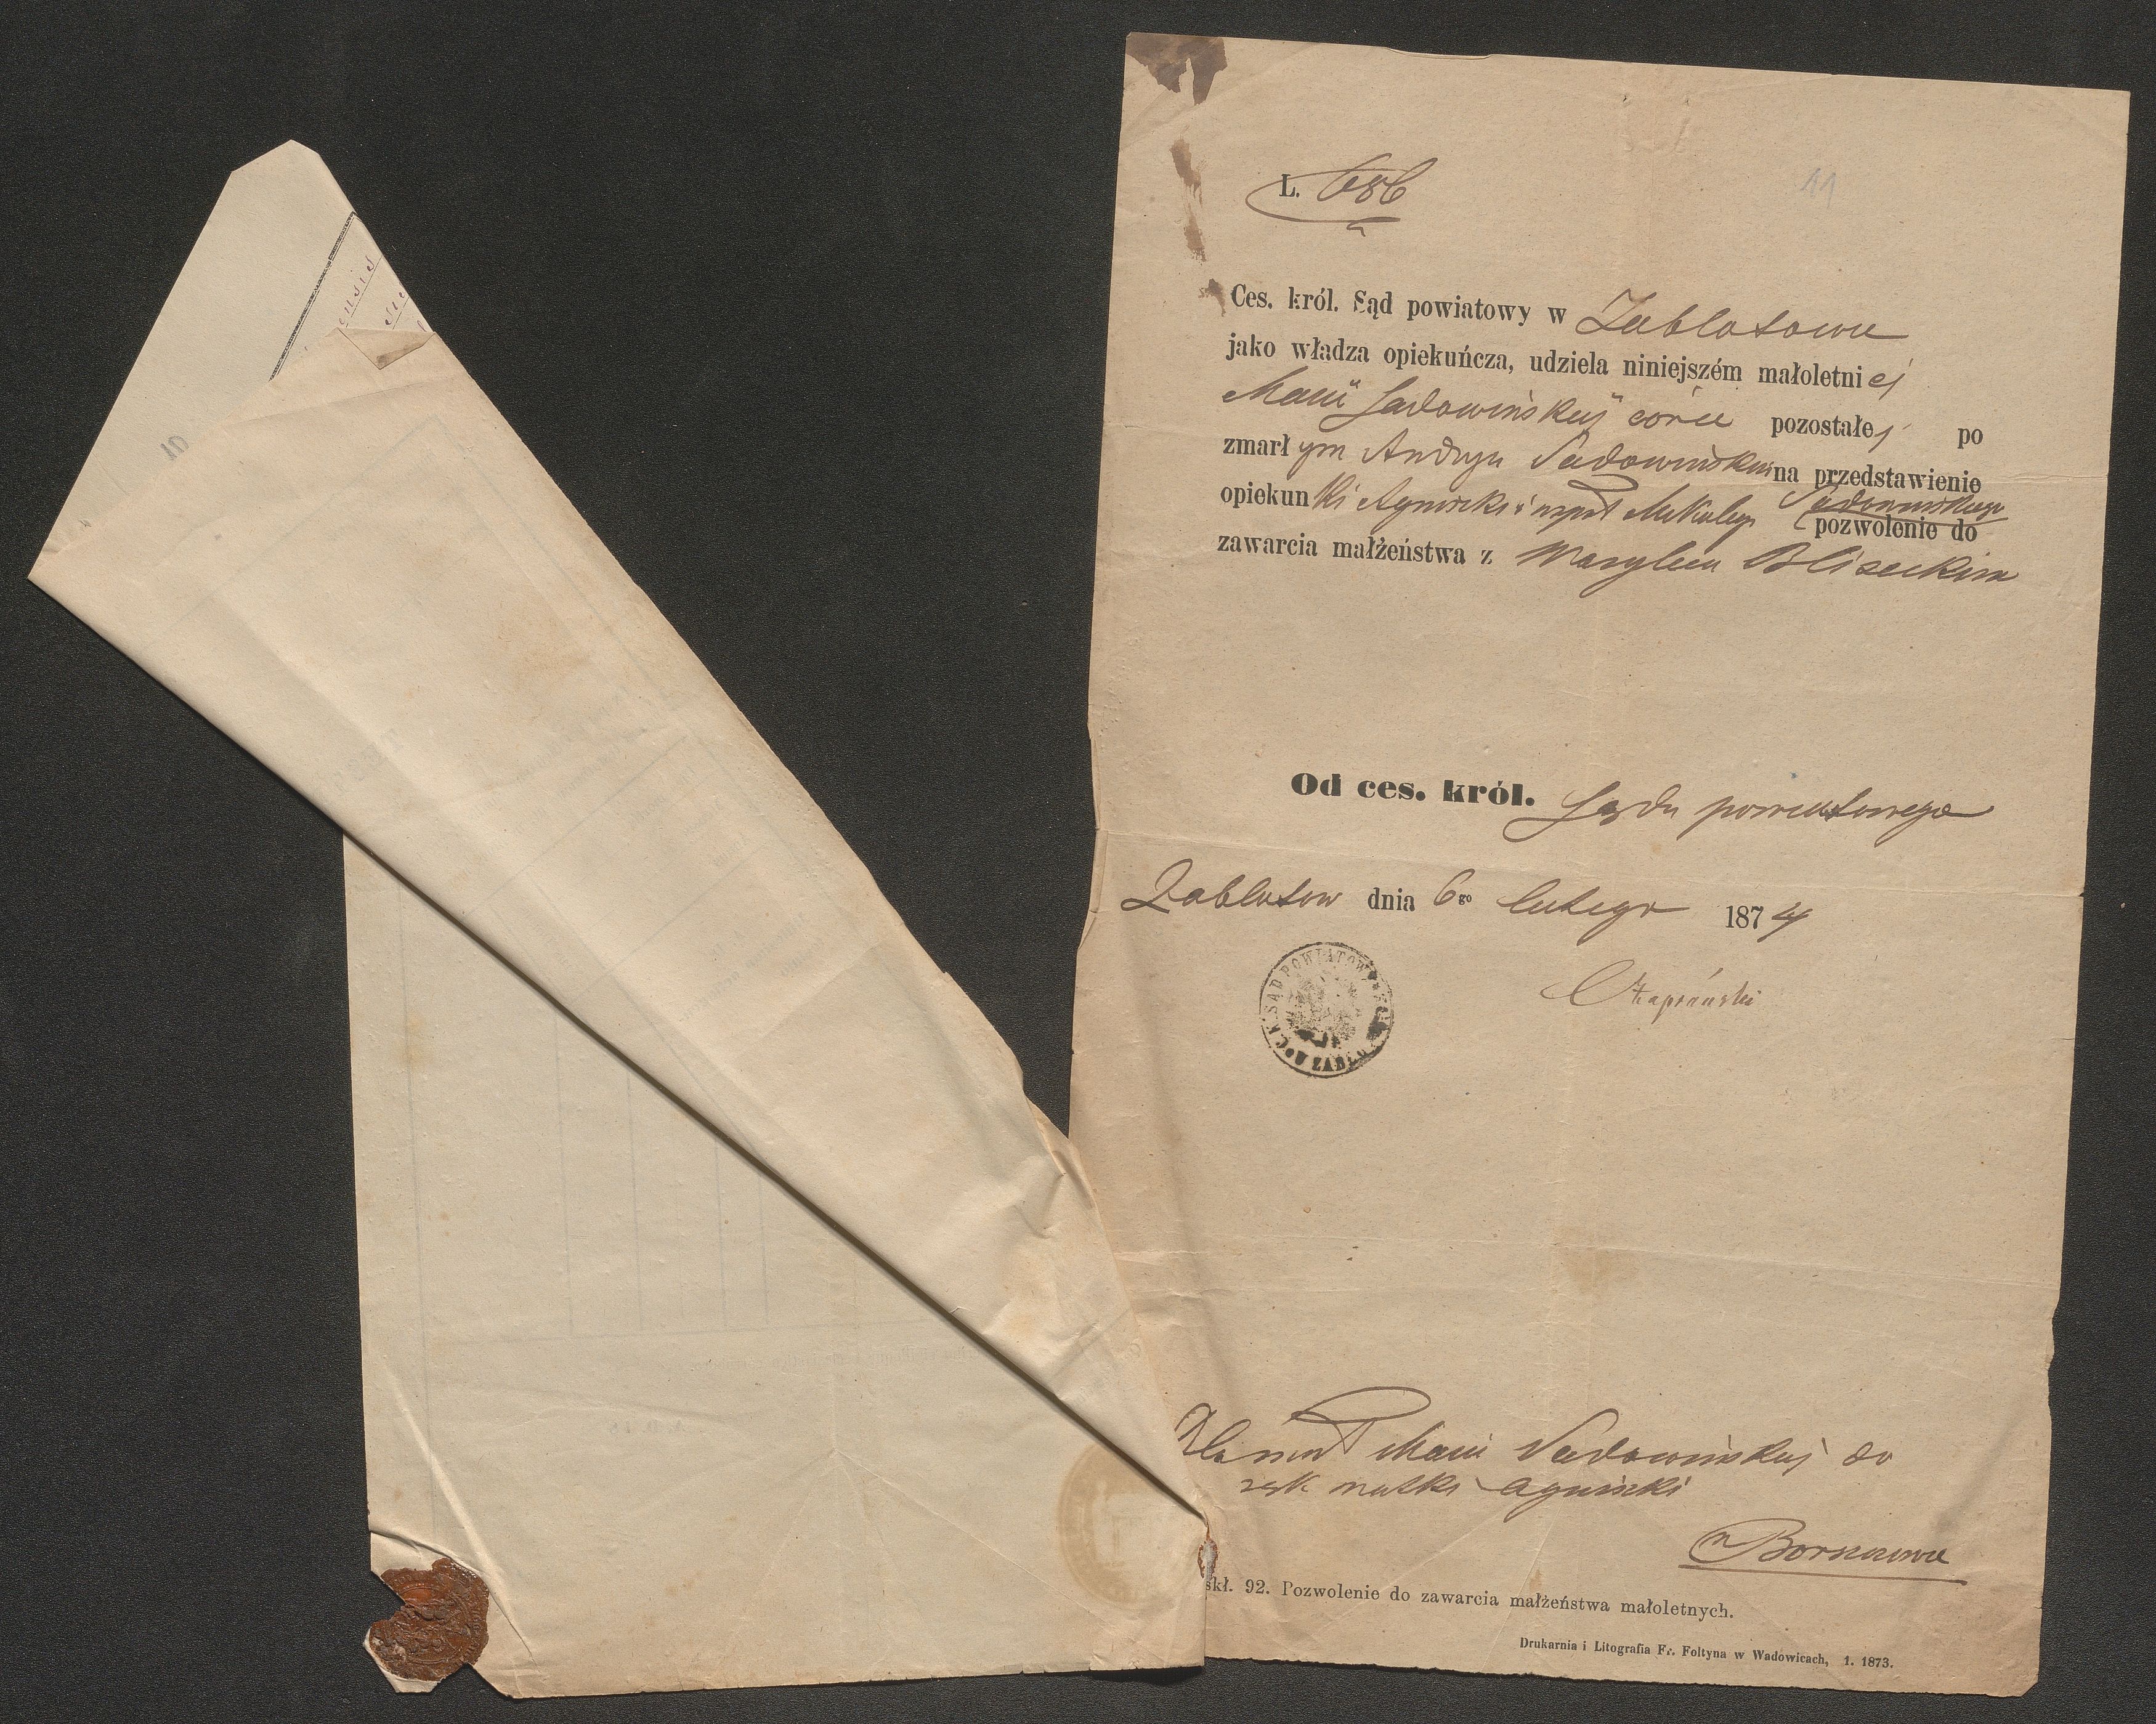 L. 686
11
Ces. król. Sąd powiatowy w Zabłotowie
jako władza opiekuńcza, udziela niniejszém małoletniej
Maryi Sadowińskiej córce pozostałej po
zmarłym Andrzeju Sadowińskim na przedstawienie
opiekunki Agnieszki i współ Mikołaja Sadowińskiego pozwolenie do
zawarcia małżeństwa z Wasylem Bliseckim
Od ces. król. Sądu powiatowego
Zabłotow dnia 6go lutego 1874
C.K. SĄD POWIATOWY
Dla mał Maryi Sadowińskiej do
rąk matki Agnieszki
w
skł. 92. Pozwolenie do zawarcia małżeństwa małoletnych.
Drukarnia i Litografia Fr. Foltyna w Wadowicach, 1. 1873.
10